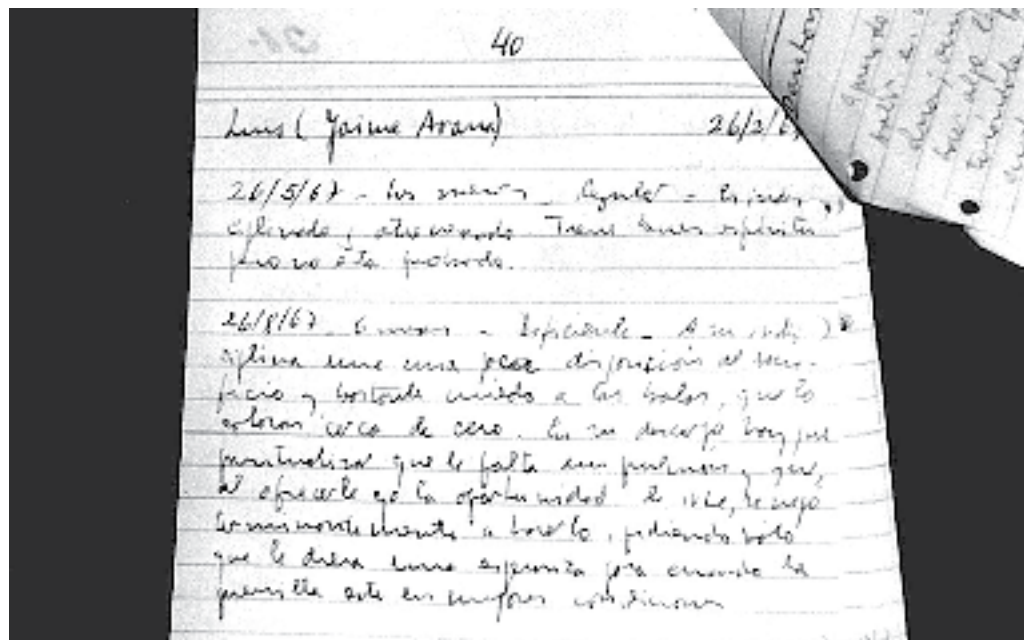 40
Luis (Jaime Arana) 26/2/6
26/5/67 - tres meses. Regular - Es indis
ciplinado y atravesado. Tiene buen espíritu
pero no está probado.
26/8/67 6 meses - Deficiente - A su indis
ciplina une una poca disposición al sacri-
ficio y bastante miedo a las balas, que lo
colocan cerca de cero. En su descargo hay que
puntualizar que le falta un pulmón y que,
al ofrecerle yo la oportunidad de irse, se negó
terminantemente a hacerlo, pidiendo solo
que le diera una esperanza para cuando la
guerrilla esté en mejores condiciones